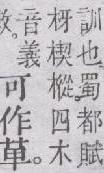 訓也。蜀都賦
枒楔樅四木
音義可作草。
敦。